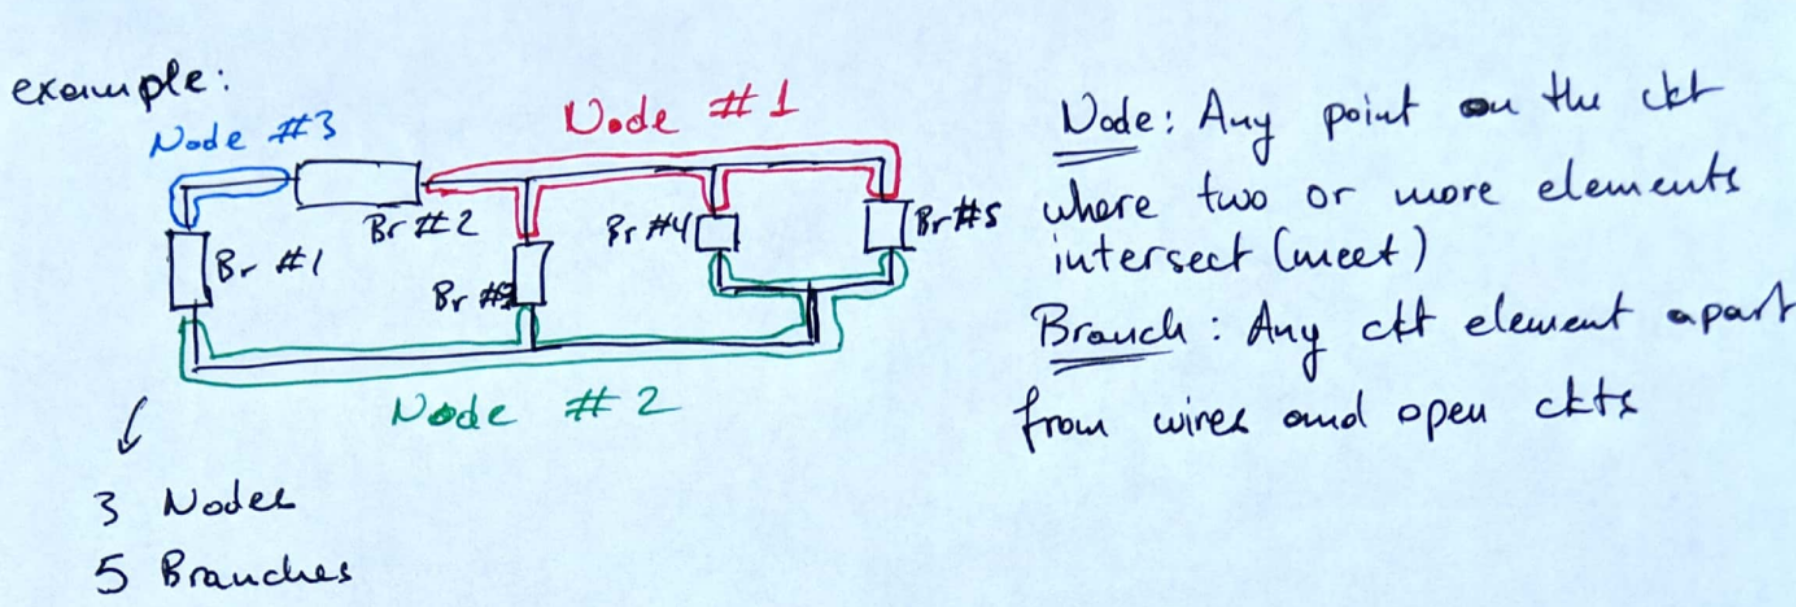 example:
Node #3
Node #1
Br #2
Br #4
Br #5
Br #1
Br #3
Node #2
3 Nodes
5 Branches
Node: Any point on the ckt
where two or more elements
intersect (meet)
Branch: Any ckt element apart
from wires and open ckts